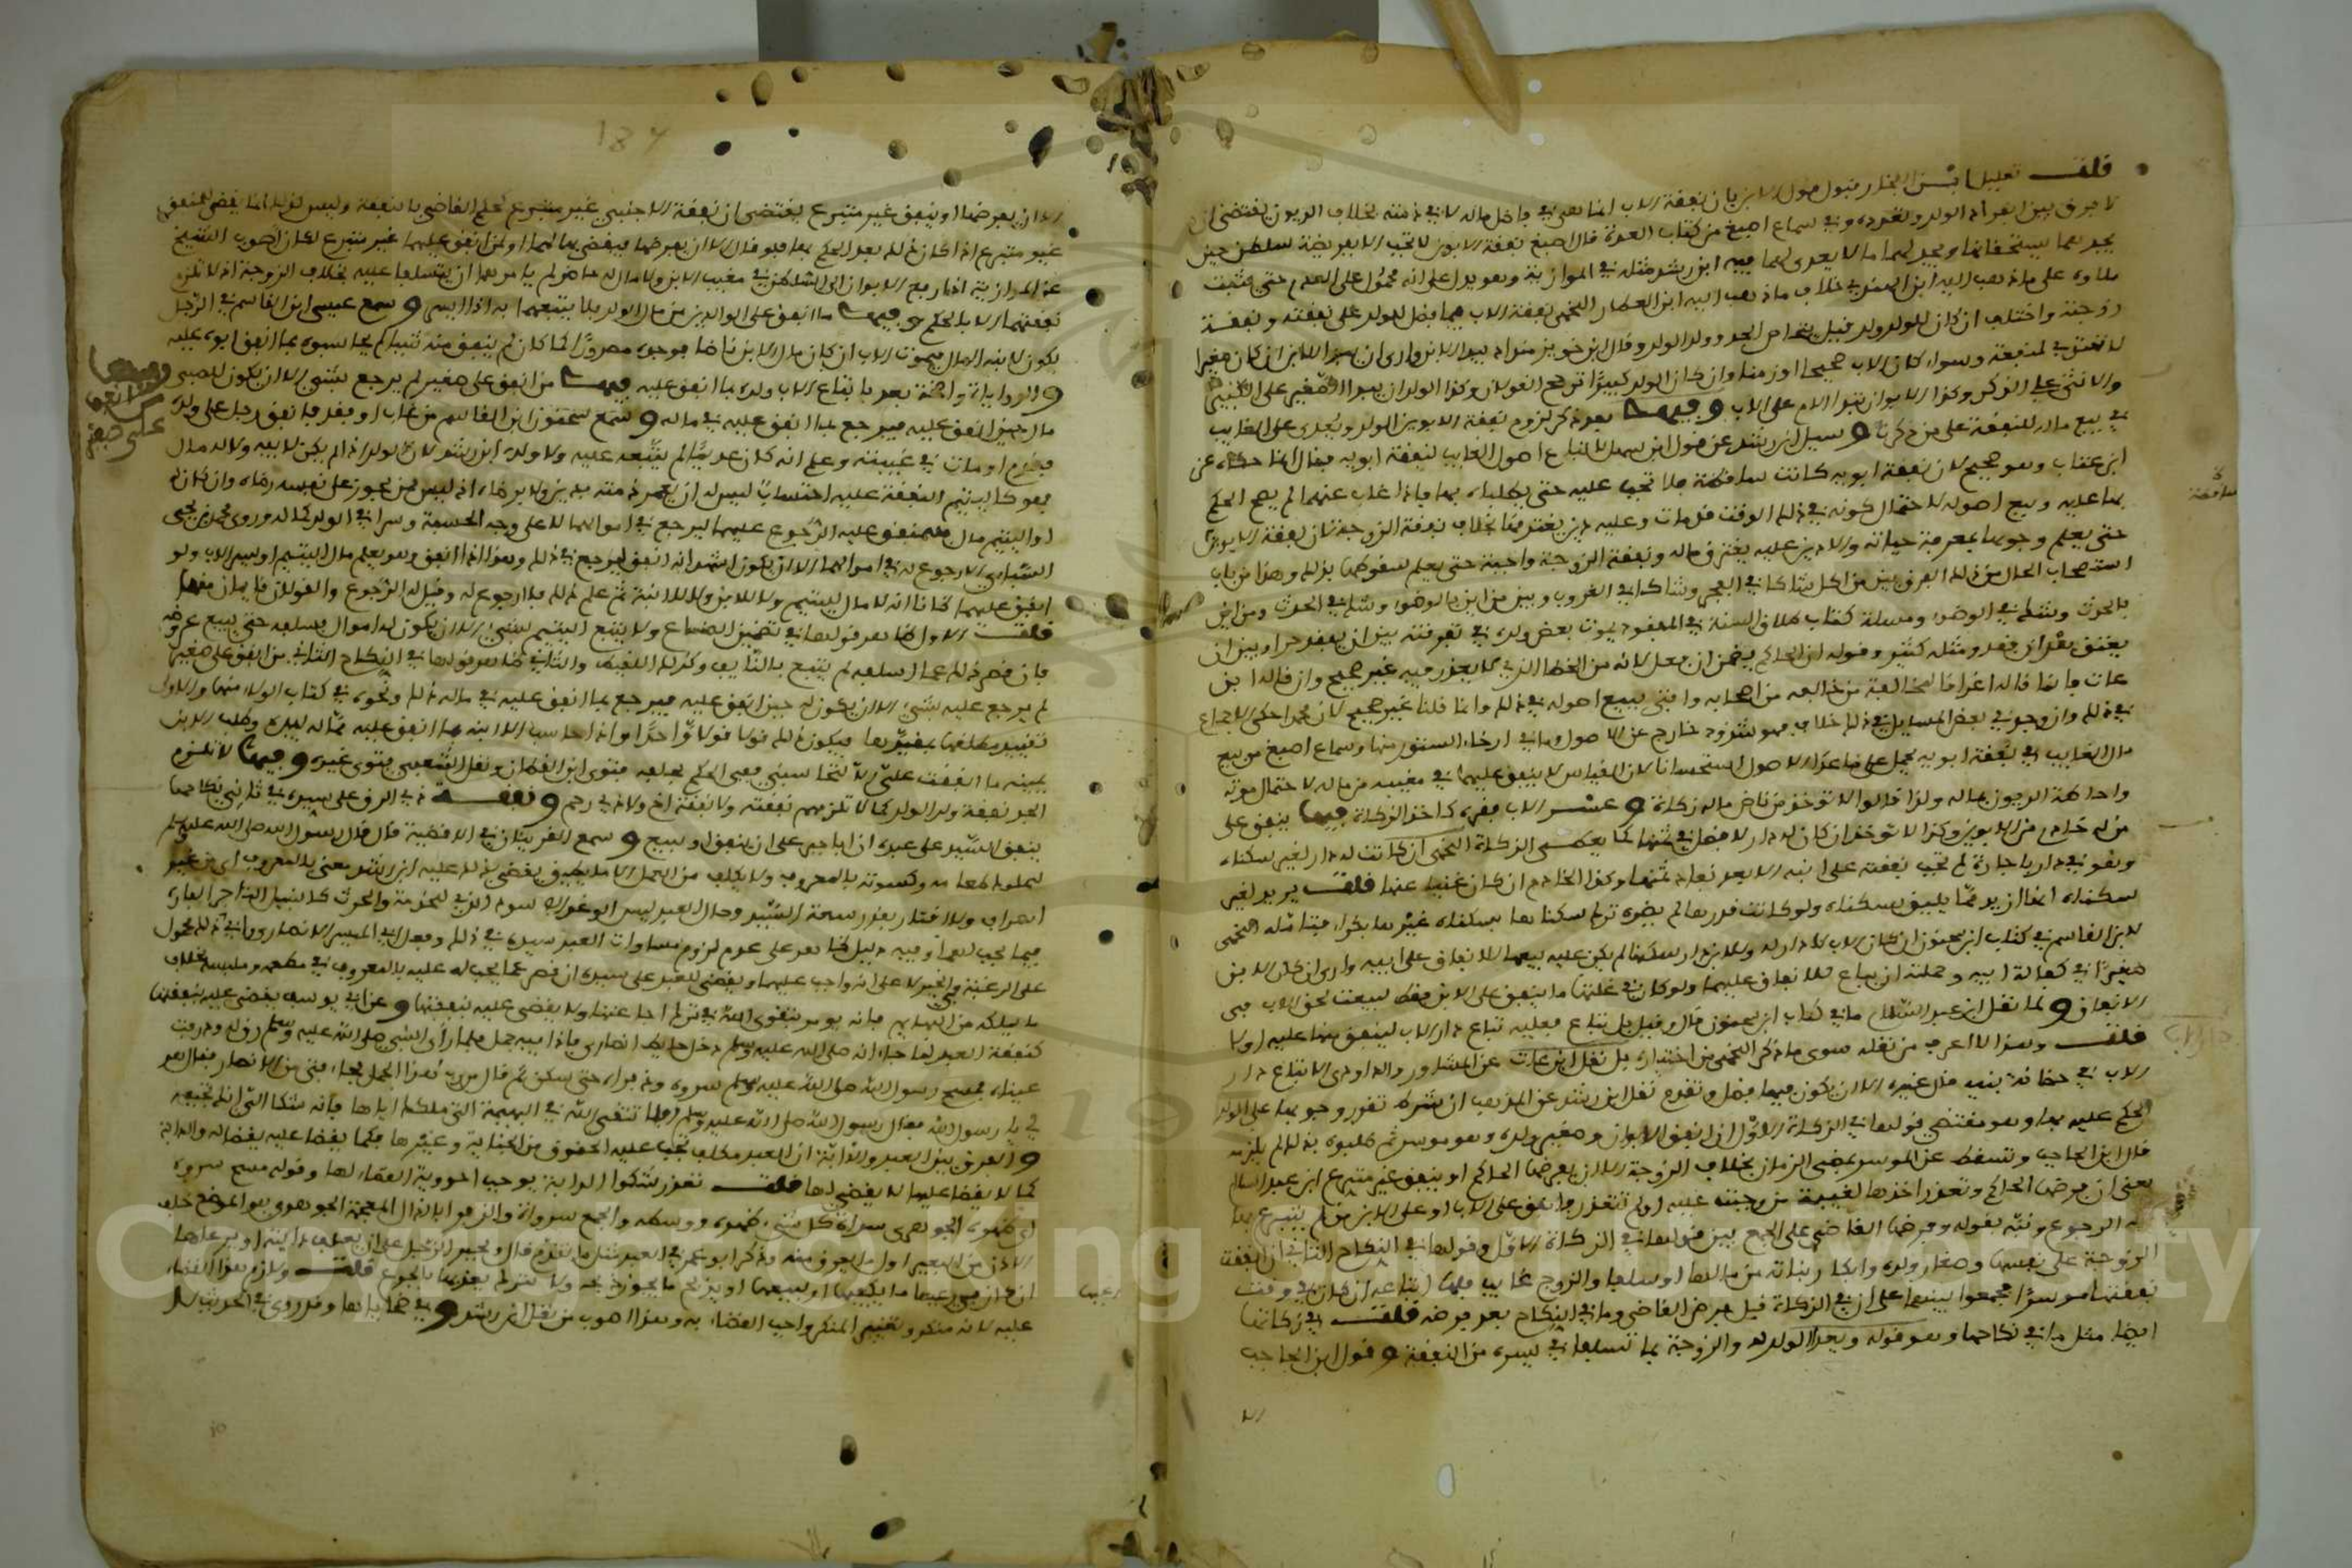 قلت تعليل ابن الفخار بقبول قول الابن بان نفقة الاب انما هي في فاضل ماله لا في ذمته بخلاف الديون يقتضي ان
لا فرق بين انفراد الولد وتعدده وفي سماع اصبغ من كتاب العدة قال اصبغ نفقة الابوين لا تجب الا بفريضة سلطان حين
يجد بهما يستحقانها ويجد لهما ما لا يعدى لهما فيه ابن رشد مثله في الموازية وهو يدل على انه محمول على العدم حتى يثبت
ملاوه على ما ذهب اليه ابن الهندي خلاف ما ذهب اليه ابن العطار اللخمي نفقة الاب فيما فضل للولد على نفقته ونفقة
زوجته واختلف ان كان للولد ولد فقيل يتحاص الجد وولد الولد وقال ابن خويز منداد يبدا الابن وارى ان يبدا الابن ان كان صغيرا
لا يهتدي لمنفعة وسواء كان الاب صحيحا او زمنا وان كان الولد كبيرا ترجح القولان وكذا الولدان يبدا الصغير على الكبير
والانثى على الذكر وكذا الابوان تبدا الام على الاب وفيها بعد ذكر لزوم نفقة الابوين الولد ويعدى على الغايب
في بيع ماله للنفقة على من ذكرنا وسيل ابن رشد عن قول ابن سهل لا تباع اصول الغايب لنفقة ابويه فقال انما حكاه عن
ابن عتاب وهو صحيح لان نفقة ابويه كانت ساقطة فلا تجب عليه حتى يطلباه بها فاذا غاب عنهما لم يصح الحكم
بها عليه وبيع اصوله لاحتمال كونه في ذلك الوقت قد مات وعليه دين يغترقها بخلاف نفقة الزوجة لان نفقة الابوين
حتى يعلم وجوبها بمعرفة حياته والا دين عليه يغترق ماله ونفقة الزوجة واجبة حتى يعلم سقوطها بذلك وهذا من باب
استصحاب الحال من ذلك الفرق بين من اكل شاكا في الفجر وشاكا في الغروب وبين من ايقن بالوضوء وشك في الحدث ومن ايقن
بالحدث وشك في الوضوء ومسلة كتاب طلاق السنة في المفقود يموت بعض ولده في تفرقته بين ان يفقد حرا وبين ان
يعتق بعد ان فقد ومثله كثير وقوله ان الحاكم يضمن ان فعل لانه من الخطا الذي لا يعذر فيه غير صحيح وان قاله ابن
عات فانما قاله اغراقا لمخالفة من خالفه من اصحابه وافتى ببيع اصوله في ذلك وانما قلنا غير صحيح لان محمدا حكى الاجماع
في ذلك وان وجد في بعض المسايل في ذلك خلاف فهو شذوذ خارج عن الاصول وما في ارخاء الستور منها وسماع اصبغ من بيع
مال الغايب في نفقة ابويه يحمل على ما عدا الاصول استحسانا لان القياس لا ينفق عليهما في مغيبه من ماله لاحتمال موته
واحاطة الديون بماله ولذا قالوا لا توخذ من ناض ماله زكاة وعشر الاب بفقره كاخذ الزكاة فيها ينفق على
من له خادم من الابوين وكذا الا توخذ ان كان له دار لا فضل في ثمنها كما يعطى الزكاة اللخمي ان كانت له دار لغير سكناه
وهو في دار باجارة لم تجب نفقته على ابنه الا بعد نفاد ثمنها وكذا الخادم ان كان غنيا عنها قلت يريد لغير
سكناه انها ازيد مما يليق بسكناه ولو كانت قدرها لم يضره ترك سكناها بسكناه غيرها بكراء فتامله اللخمي
لابن القاسم في كتاب ابن سحنون ان كان للاب دار له وللابن دار سكنا لم يكن عليه بيعها للانفاق على ابيه وارى ان كان الابن
صغيرا في كفالة ابيه وحملته ان يباع للانفاق عليهما ولو كان في غلتها ما ينفق على الابن فقط لبيعت لحق الاب في
الانفاق ولما نقل ابن عبد السلام ما في كتاب ابن سحنون قال وقيل بل تباع فعليه تباع دار الاب لينفق منها عليه اولا
قلت وهذا لا اعرف من نقله سوى ما ذكر اللخمي من اختياره بل نقل ابن عات عن المشاور والداودي لا تباع دار
الاب في حضانة بنيه قال غيره الا ان يكون فيها فضل وتقدم نقل ابن رشد عن المذهب ان شرط تقرر وجوبها على الولد
الحكم عليه بها وهو مقتضي قولها في الزكاة الاول ان انفق الابوان وصغير ولده وهو موسر ثم طلبوه بذلك لم يلزمه
قال ابن الحاجب وتسقط عن الموسر بمضي الزمان بخلاف الزوجة الا ان يفرضها الحاكم او ينفق غير متبرع ابن عبد السلام
يعني ان فرضها الحاكم وتعذر اخذها لغيبة من وجبت عليه او لم تتعذر فانفق على الاب او على الابن من لم يتبرع فله
له الرجوع ونبه بقوله وفرضها القاضي على الجمع بين قولها في الزكاة الاول وقولها في النكاح الثاني ان انفقت
الزوجة على نفسها وصغار ولده وابكار بناته من مالها او سلفا والزوج غايب فلها اتباعه ان كان في وقت
نفقتها موسرا فجمعوا بينهما على ان في الزكاة قبل فرض القاضي وما في النكاح بعد فرضه قلت في زكاتها
ايضا مثل ما في نكاحها وهو قوله ويعدا الولد والزوجة بما تسلفا في يسره من النفقة وقول ابن الحاجب
الا
ساقطة
دار الاب
184
الا ان يفرضها او ينفق غير متبرع يقتضي ان نفقة الاجنبي غير متبرع كحكم القاضي بالنفقة وليس كذلك انما يقضى للمنفق
غير متبرع اذا كان ذلك بعد الحكم بها فلو قال الا ان يفرضها فيقضي بها لهما او لمن انفق عليهما غير متبرع لكان اصوب الشيخ
عن الموازية اذا رفع الابوان الى السلطان في مغيب الابن ولا مال له حاضر لم يامرهما ان يتسلفا عليه بخلاف الزوجة اذ لا تلزم
نفقتهما الا بالحكم وفيها ما انفق على الوالدين من مال الولد فلا يتبعهما به اذا ايسرا وسمع عيسى ابن القاسم في الرجل
يكون لابنه المال فيموت الاب ان كان مال الابن ناضا فوجد مصرورا كما كان لم ينفق منه شيئا لم يحاسبوه بما انفق ابوه عليه
والروايات واضحة بعدم اتباع الاب ولده بما انفق عليه فيها من انفق على صغير لم يرجع بشيء الا ان يكون للصبي
مال حين انفق عليه فيرجع بما انفق عليه في ماله وسمع سحنون ابن القاسم من غاب او فقد فانفق رجل على ولده
فقدم او مات في غيبته وعلم انه كان عديما لم يتبعه عليه ولا ولده ابن رشد لان الولد اذا لم يكن لابيه ولا له مال
فهو كاليتيم النفقة عليه احتسابا ليس له ان يعمر ذمته بدين ولا برضاه اذ ليس ممن يجوز على نفسه رضاه وان كان له
او لليتيم مال فللمنفق عليه الرجوع عليهما ليرجع في اموالهما لا على وجه الحسبة وسرا في الولد كماله وروى محمد بن يحيى
السبائي لا رجوع له في اموالهما الا ان يكون اشهد انه انفق ليرجع في ذلك وهذا اذا انفق وهو يعلم مال اليتيم او يسر الاب ولو
انفق عليهما ظانا انه لا مال لليتيم ولا للابن ولا لابنة ثم علم ذلك فلا رجوع له وقيل له الرجوع والقولان قايمان منها
قلت الاول ظاهر قولها في تضمين الصناع ولا يتبع اليتيم بشيء الا ان يكون له اموال فيسلفه حتى يبيع عروضه
فان قصر ذلك عما اسلفه لم يتبع بالتالف وكذلك اللقيط والثاني ظاهر قولها في النكاح الثاني من انفق على صغير
لم يرجع عليه بشيء الا ان يكون له مال حين انفق عليه فيرجع بما انفق عليه في ماله ذلك ونحوه في كتاب الولاء منها والاول
تقييد مطلقها بمقيدها فيكون ذلك قولا واحدا واذا حاسب الاب ابنه بما انفق عليه مما له بيده وطلب الابن
يمينه ما انفقت علي الا لتحاسبني ففي الحكم بحلفه فتوى ابن القطان ونقل الشعبي فتوى غيره وفيها لا تلزم
الجد نفقة ولد الولد كما لا تلزمهم نفقته ولا نفقة اخ ولا ذي رحم ونفقة ذي الرق على سيده في ثاني نكاحها
ينفق السيد على عبده ان ابى اجبر على ان ينفق او يبيع وسمع القرينان في الاقضية قال قال رسول الله صلى الله عليه وسلم
للمملوك طعامه وكسوته بالمعروف ولا يكلف من العمل الا ما يطيق يقضى بذلك عليه ابن رشد معنى بالمعروف اي من غير
اسراف ولا اقتار بقدر سعة السيد وحال العبد ليس الوغد الاسود الذي للخدمة والحرث كالنبيل التاجر الفاره
فيما يجب لهما وفيه دليل ظاهر على عدم لزوم مساوات العبد سيده في ذلك وفعل ابي اليسر الانصاري وابي ذر محمول
على الرغبة والخير لا على انه واجب عليهما ويقضى للعبد على سيده ان قصر عما يجب له عليه بالمعروف في مطعمه وملبسه بخلاف
ما يملكه من البهايم فانه يومر بتقوى الله في ترك اجاعتها ولا يقضى عليه بنفقتها وعن ابي يوسف يقضى عليه بنفقتها
كنفقة العبد لما جاء انه صلى الله عليه وسلم دخل حايط انصاري فاذا فيه جمل فلما راى النبي صلى الله عليه وسلم رق له وذرفت
عيناه فمسح رسول الله صلى الله عليه وسلم سروه وذفراه حتى سكن ثم قال من رب هذا الجمل فجاء فتى من الانصار فقال هو
لي يا رسول الله فقال رسول الله صلى الله عليه وسلم اولا تتقي الله في البهيمة التي ملكك اياها فانه شكا الي انك تجيعه
والفرق بين العبد والدابة ان العبد مكلف تجب عليه الحقوق من الجناية وغيرها فكما يقضا عليه يقضا له والدابة
كما لا يقضا عليها لا يقضى لها قلت تقرر شكوا الدابة يوجب احروية القضاء لها وقوله مسح سروه
اي ظهره الجوهري سراة كل شيء ظهره ووسطه والجمع سروات والذفرا بالذال المعجمة الجوهري هو الموضع خلف
الاذن من البعير اول ما يعرق منه وذكر ابو عمر في العبد مثل ما تقدم قال ويجبر الرجل على ان يعلف دابته او يرعاها
ان كان في رعيها ما يكفيها او يبيعها او يذبح ما يجوز ذبحه ولا يترك يعذبها بالجوع قلت ولازم هذا القضاء
عليه لانه منكر وتغيير المنكر واجب القضاء به وهذا اصوب من نقل ابن رشد وفي ضحاياها وقد روي في الحديث لا
وفيها
من انفق
على صغير
رعيها
Copyright King Saud University